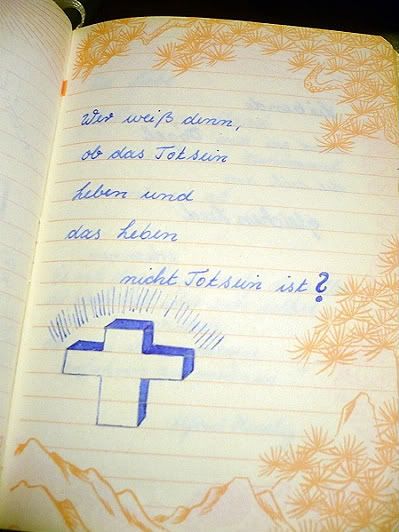 Wer weiß denn,
ob das Totsein
Leben und
das Leben
nicht Totsein ist?